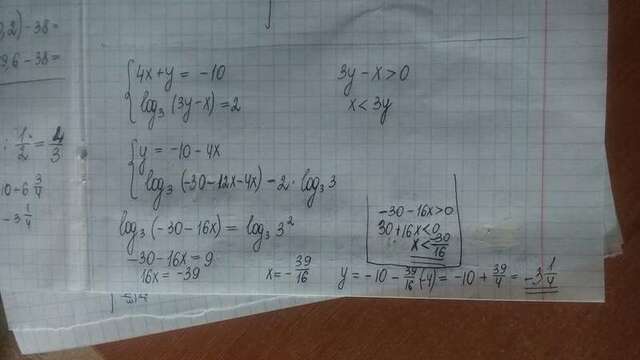 0,2) - 38 =
9,6 - 38 =
: 1/2 = 4/3
10 + 6 3/4
- 3 1/4
4x + y = -10
log₃ (3y - x) = 2
3y - x > 0
x < 3y
y = -10 - 4x
log₃ (-30 - 12x - 4x) - 2 · log₃ 3
log₃ (-30 - 16x) = log₃ 3²
-30 - 16x = 9
16x = -39
x = - 39/16
-30 - 16x > 0
30 + 16x < 0
x < - 30/16
y = -10 - 39/16 (-4) = -10 + 39/4 = -3 1/4